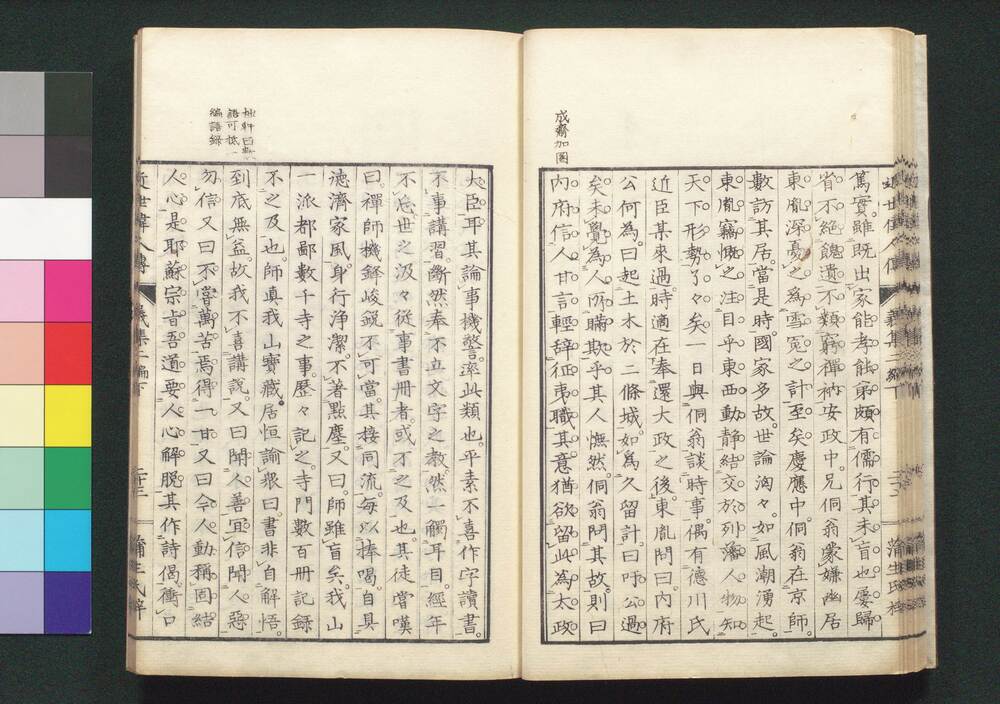 成齋加圏
篤實。雖既出家能孝能弟。頗有儒行。其未盲也。屡歸
省。不絕餽遺。不類窮禪衲。安政中。兄侗翁蒙嫌幽居
東胤深憂之。為雪冤之計至矣。慶應中侗翁在京師。
數訪其居。當是時。國家多故。世論洶々。如風潮湧起。
東胤竊慨之。注目乎東西動静。結交於列藩人物。知
天下形勢了々矣。一日與侗翁談時事。偶有德川氏
近臣某來過。時適在奉還大政之後。東胤問曰。內府
公何為。曰起土木於二條城。如為久留計。曰吁公過
矣。未覺為人所瞞欺乎。其人憮然。侗翁問其故。則曰
內府信人甘言。輕辞征夷職。其意猶欲留此為太政
大臣耳。其論事機警。率此類也。平素不喜作字讀書。
不事講習。斷然奉不立文字之教。然一觸耳目。經年
不忘。世之汲々從事書冊者。或不之及也。其徒嘗嘆
曰。禪師機鋒峻銳。不可當。其接同流。每以捧喝。自具
德濟家風。身行浄潔。不著點塵。又曰。師雖盲矣。我山
一派都鄙數千寺之事。歷々記之。寺門數百冊記録
不之及也。師真我山寶藏。居恒諭衆曰。書非自解悟。
到底無益。故我不喜講說。又曰。聞人善宜信。聞人惡
勿信。又曰。不嘗萬苦。焉得一甘。又曰。今人動稱固結
人心。是耶蘇宗旨。吾道要人心解脱。其作詩偈。衝口
近世偉人傳
義集二編下
二十三
蒲生氏梓
編語録